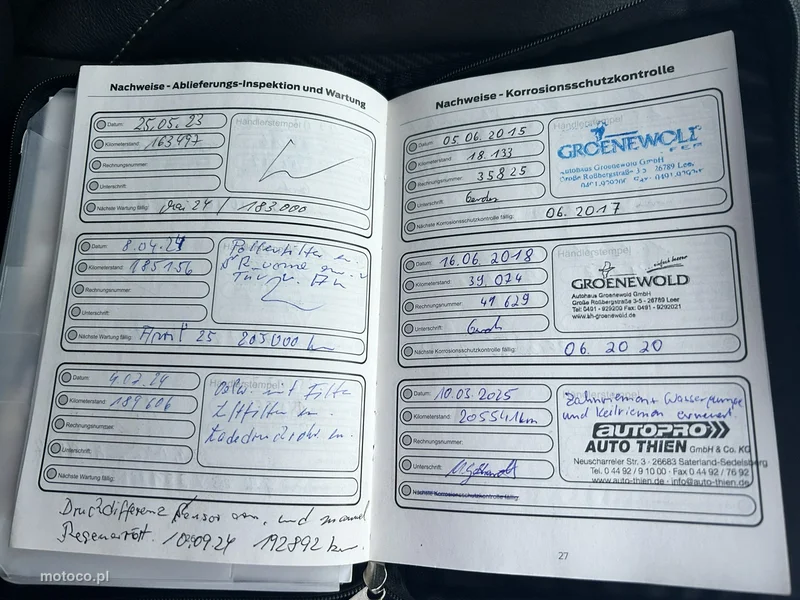 Nachweise - Ablieferungs-Inspektion und Wartung
Datum: 25.05.23
Händlerstempel
Kilometerstand: 163497
Rechnungsnummer:
Unterschrift:
Nächste Wartung fällig: Mai 24 / 183.000
Datum: 8.04.24
Händlerstempel
Pollenfilter
Kilometerstand: 185156
Rechnungsnummer:
Unterschrift:
Nächste Wartung fällig: April 25 205000 km
Datum:
Händlerstempel
Kilometerstand: 189606
mit Filter
Luftfilter
Rechnungsnummer:
Unterschrift:
Nächste Wartung fällig:
Druckdifferenz Sensor und manuel
10.09.24 192892 km
Nachweise - Korrosionsschutzkontrolle
Datum: 05.06.2015
Händlerstempel
GROENEWOLD
Kilometerstand: 18.133
Autohaus Groenewold GmbH
Rechnungsnummer: 35825
Große Roßbergstraße 3-5 26789 Leer
Unterschrift:
Nächste Korrosionsschutzkontrolle fällig: 06.2017
Datum: 16.06.2018
Händlerstempel
einfach besser
Kilometerstand: 39.074
GROENEWOLD
Autohaus Groenewold GmbH
Rechnungsnummer: 41629
Große Roßbergstraße 3-5 - 26789 Leer
Tel: 0491 - 929200 Fax: 0491 - 9292021
www.ah-groenewold.de
Unterschrift:
Nächste Korrosionsschutzkontrolle fällig: 06.2020
Datum: 10.03.2025
Händlerstempel
Zahnriemen + Wasserpumpe
Kilometerstand: 205541km
und Keilriemen erneuert
AUTOPRO
Rechnungsnummer:
AUTO THIEN GmbH & Co. KG
Neuscharreler Str. 3 - 26683 Saterland-Sedelsberg
Unterschrift:
Tel. 0 44 92 / 9 10 00 - Fax 0 44 92 / 76 92
www.auto-thien.de - info@auto-thien.de
Nächste Korrosionsschutzkontrolle fällig:
27
motoco.pl